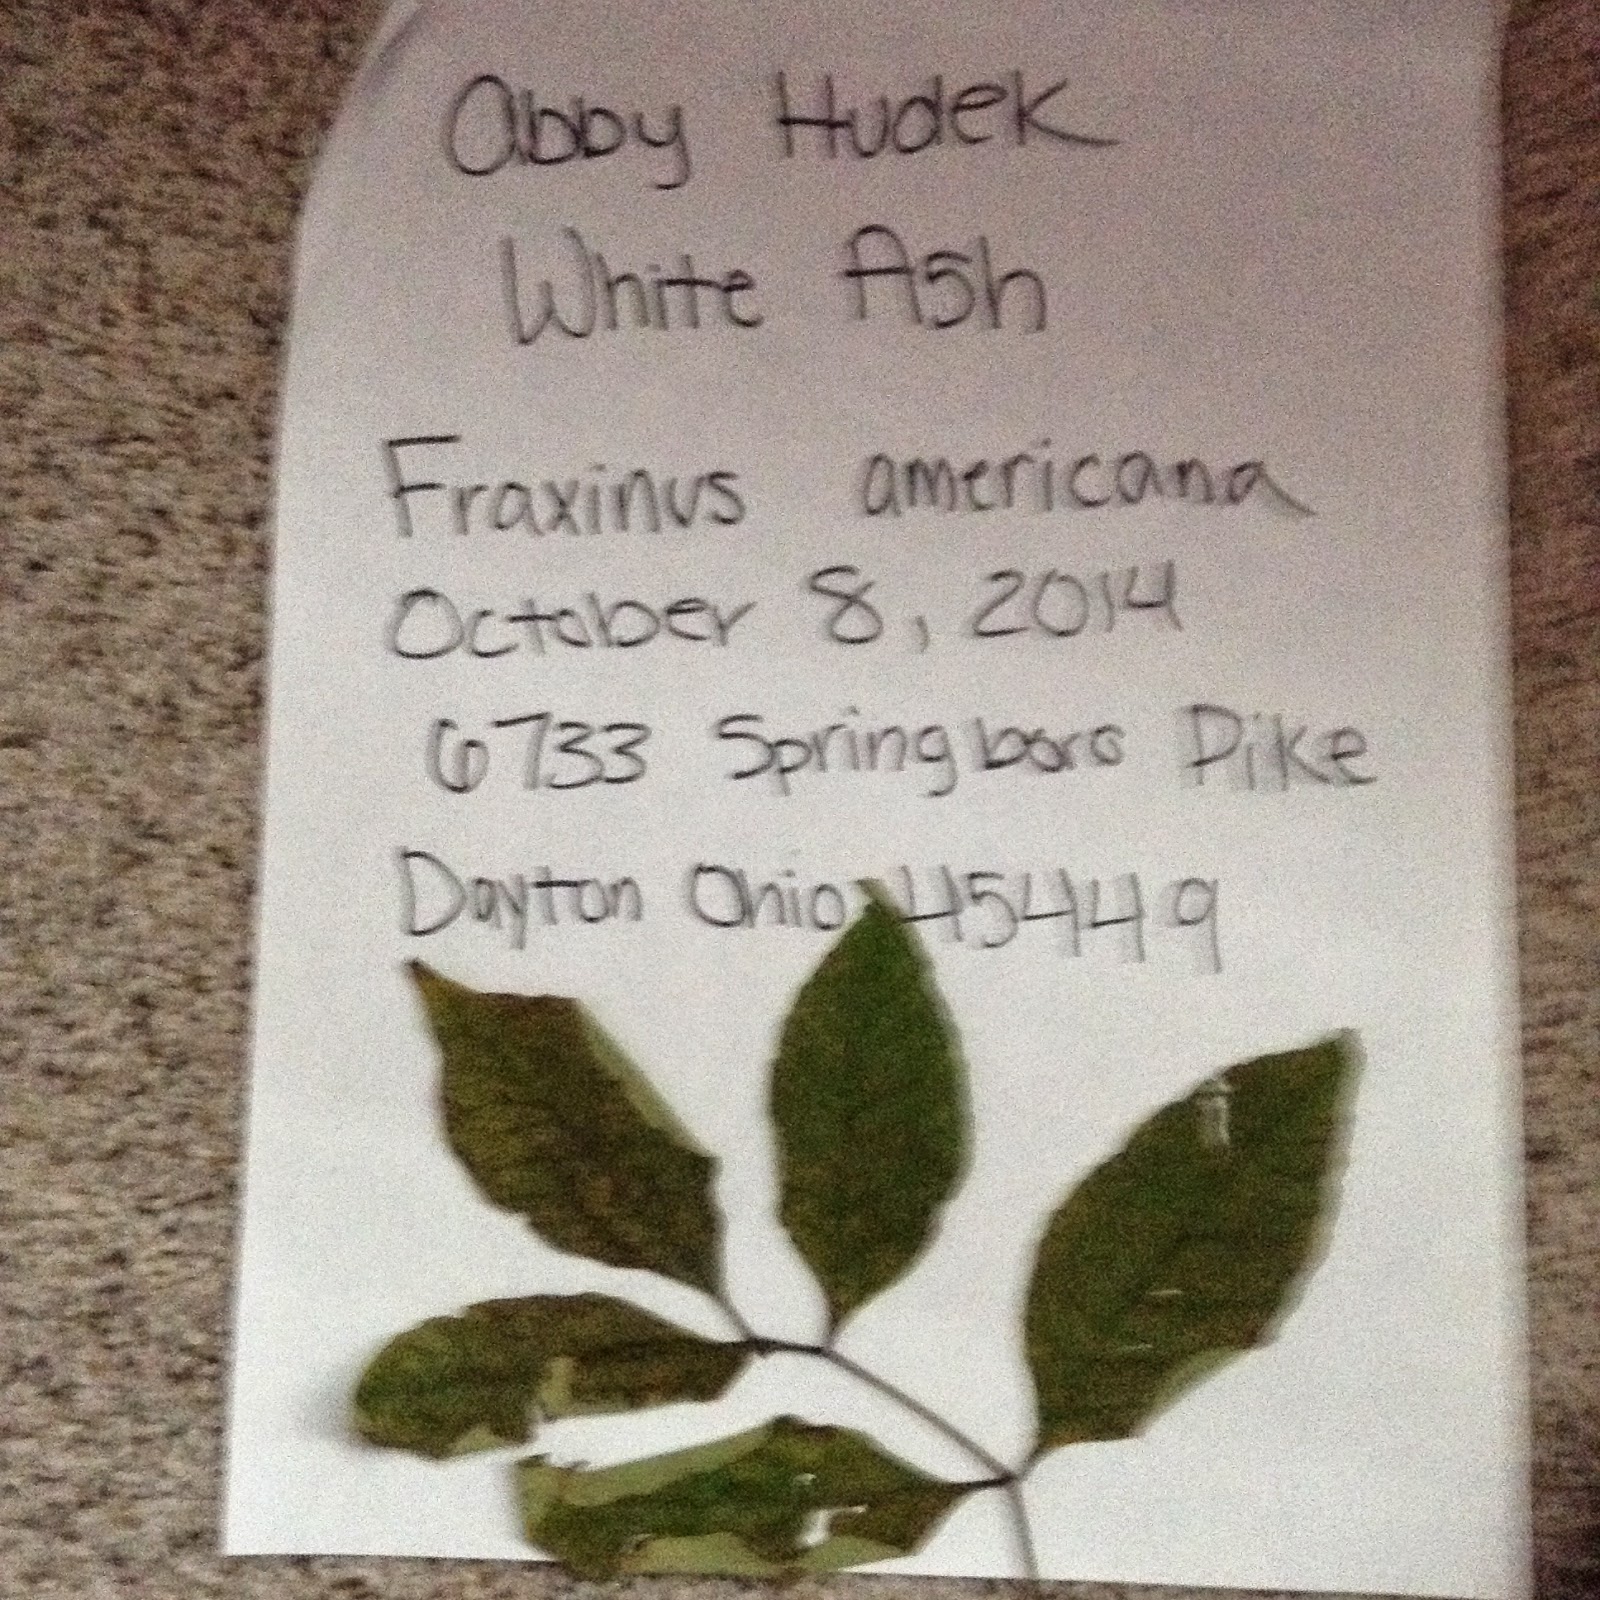 Abby Hudek
White Ash
Fraxinus americana
October 8, 2014
6733 Springboro Pike
Dayton Ohio 45449